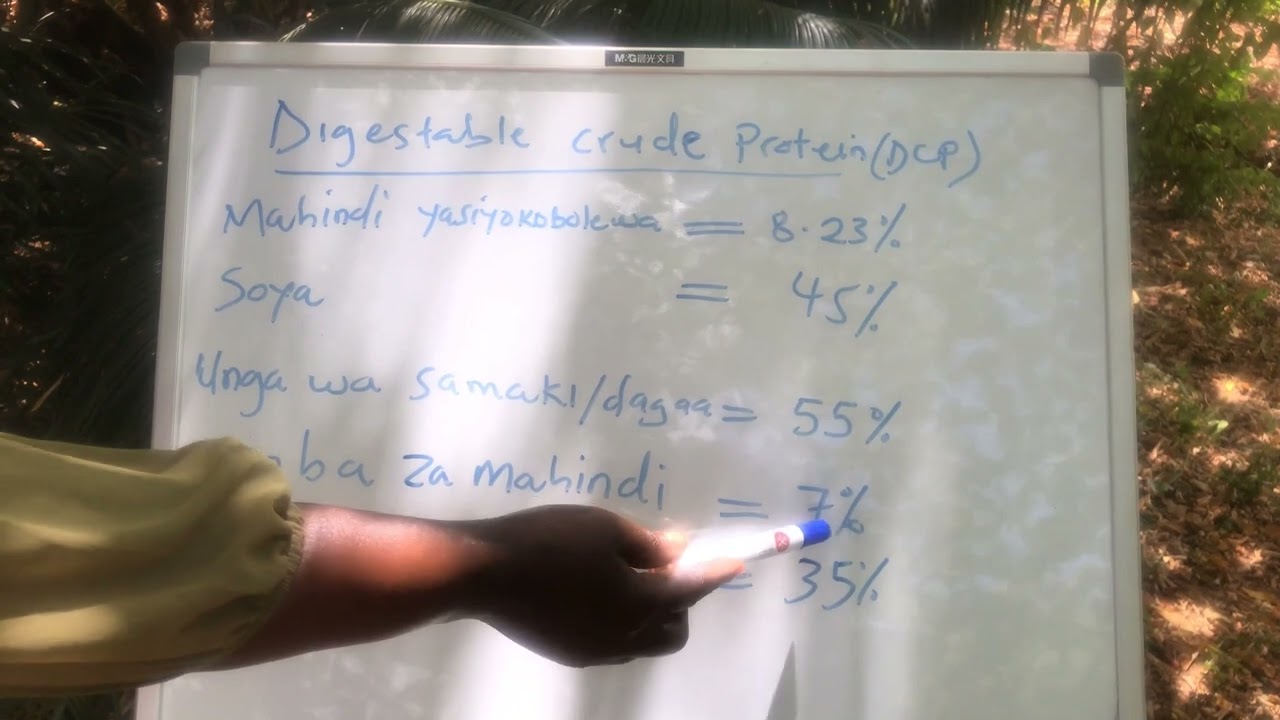 M&G晨光文具
Digestable crude Protein (DCP)
Mahindi yasiyokobolewa = 8.23%
Soya = 45%
Unga wa samaki/dagaa = 55%
za mahindi = 7%
= 35%